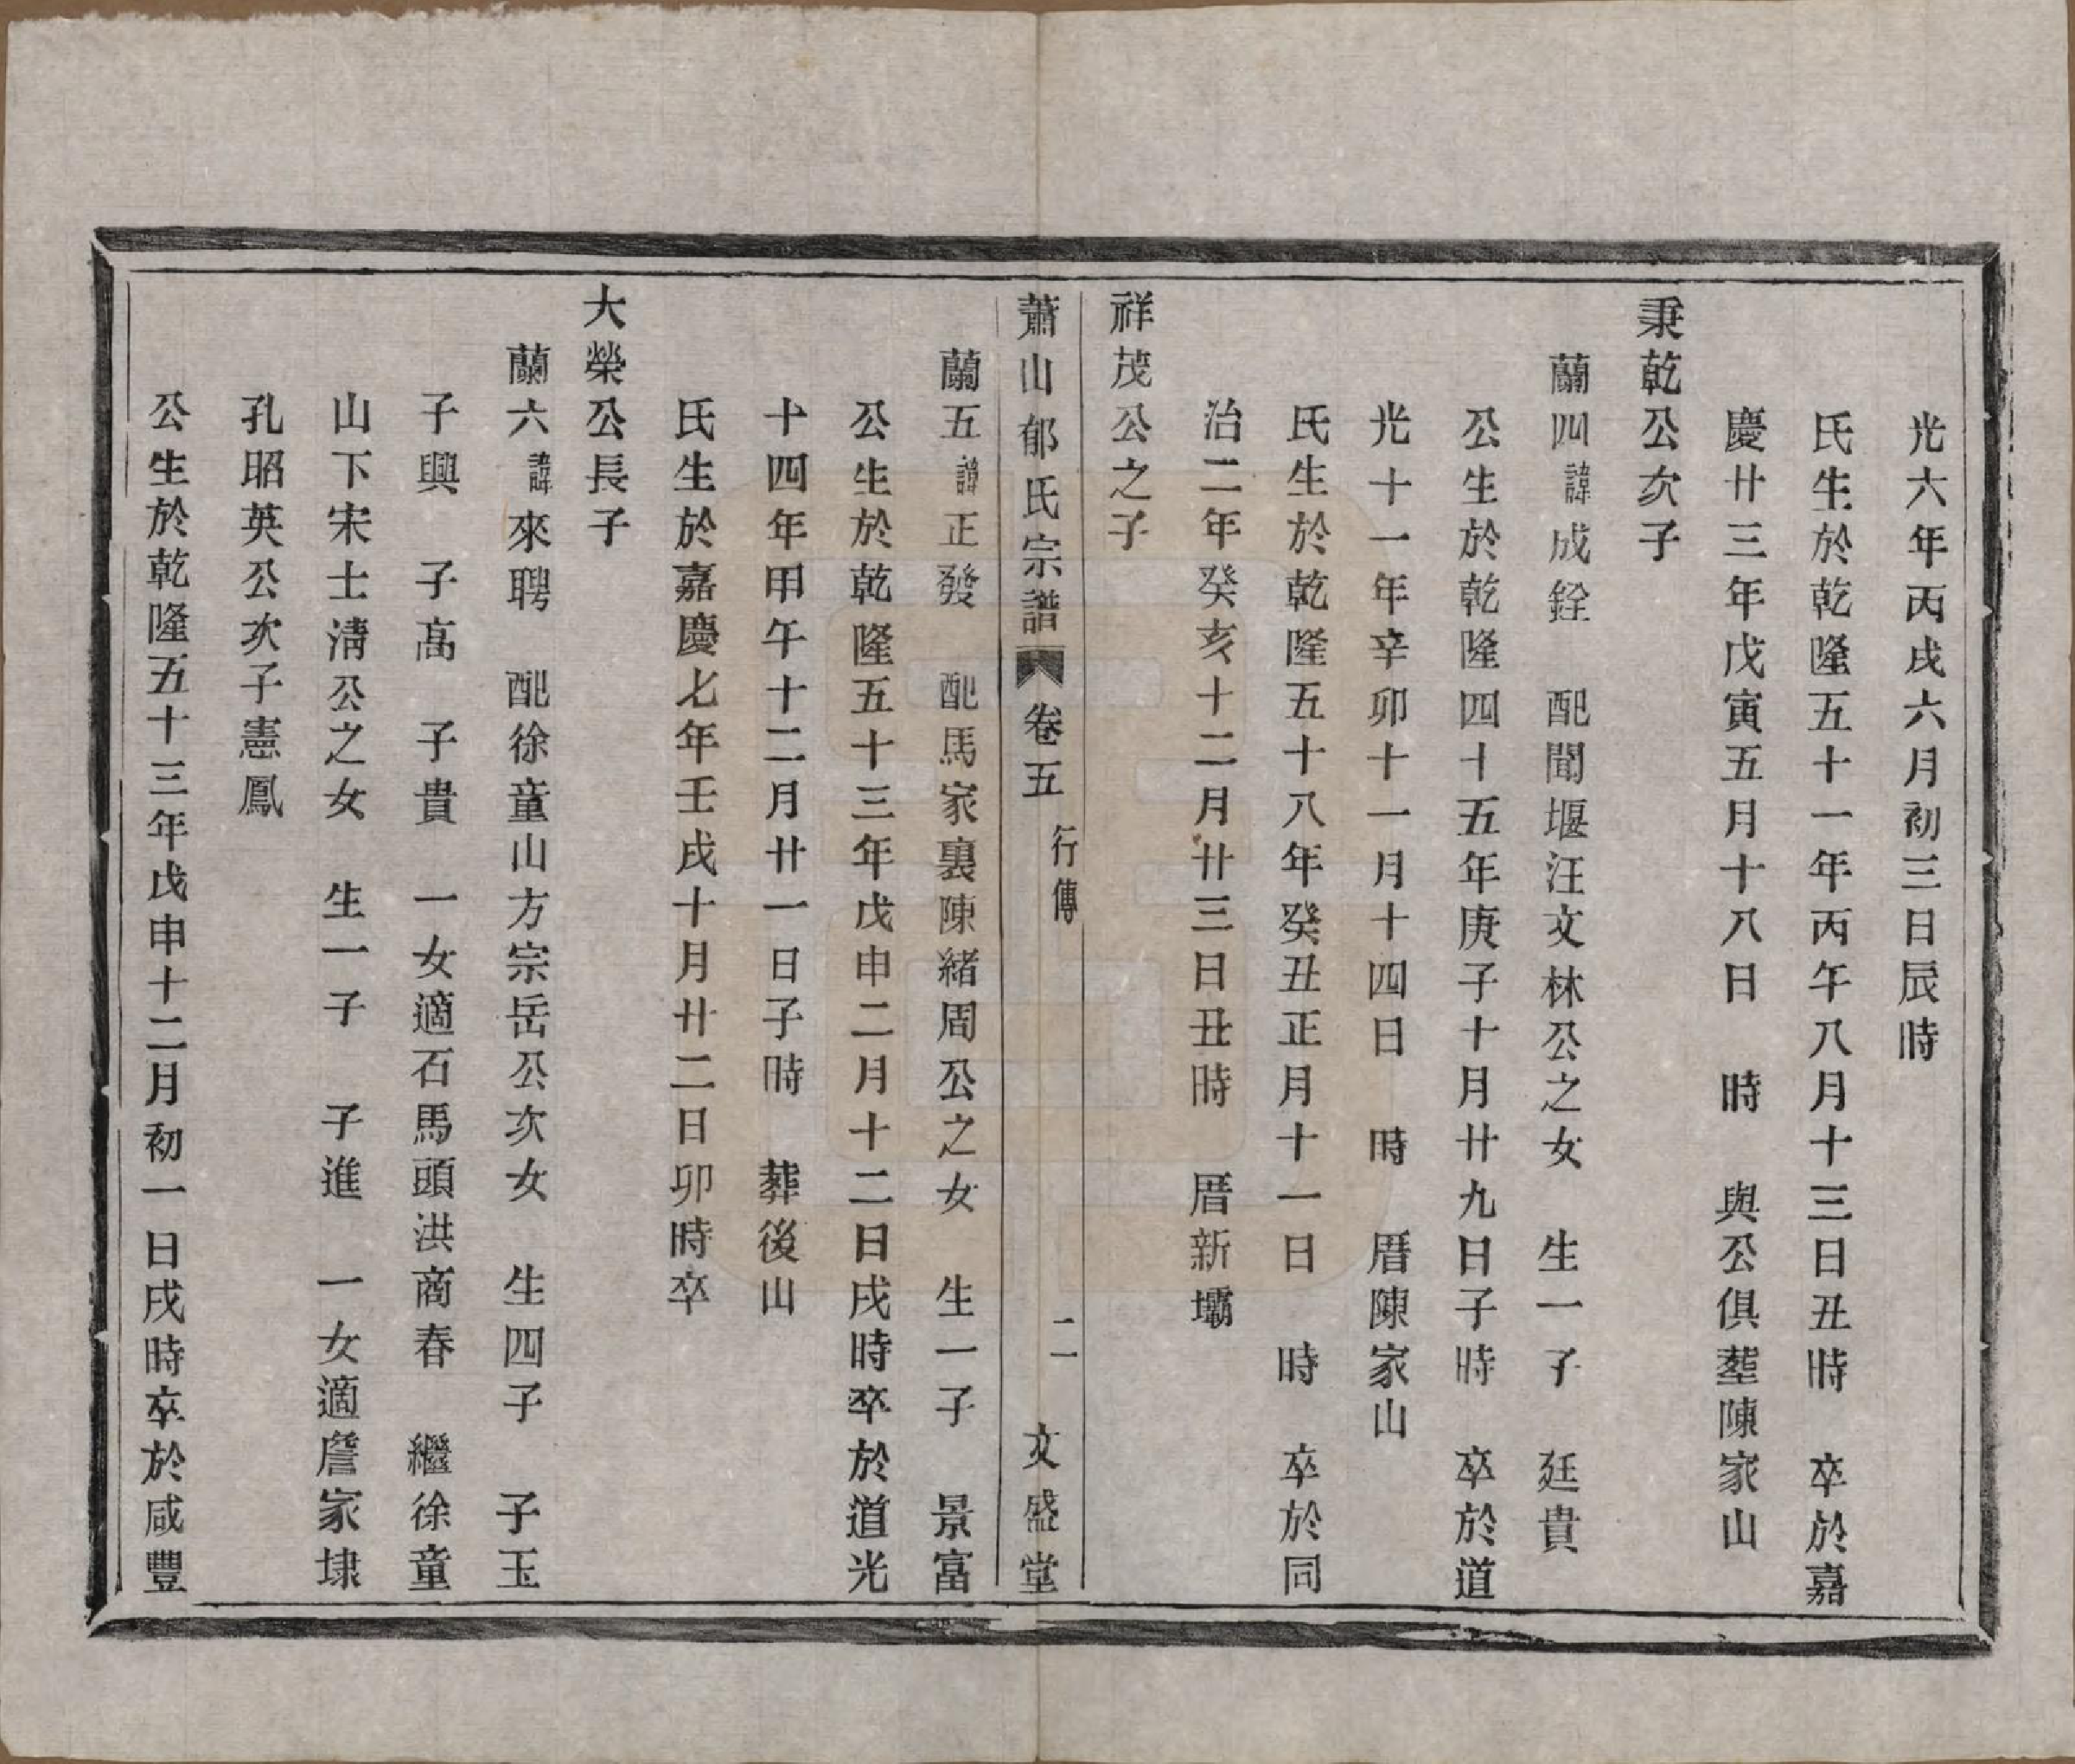 光六年丙戌六月初三日辰時
氏生於乾隆五十一年丙午八月十三日丑時 卒於嘉
慶廿三年戊寅五月十八日 時 與公俱塟陳家山
秉乾公次子
蘭四諱成銓 配聞堰汪文林公之女 生一子 廷貴
公生於乾隆四十五年庚子十月廿九日子時 卒於道
光十一年辛卯十一月十四日 時 厝陳家山
氏生於乾隆五十八年癸丑正月十一日 時 卒於同
治二年癸亥十二月廿三日丑時 厝新壩
祥茂公之子
蕭山郁氏宗譜 卷五 行傳 二 文盛堂
蘭五諱正發 配馬家裏陳緒周公之女 生一子 景富
公生於乾隆五十三年戊申二月十二日戌時卒於道光
十四年甲午十二月廿一日子時 葬後山
氏生於嘉慶七年壬戌十月廿二日卯時卒
大榮公長子
蘭六諱來聘 配徐童山方宗岳公次女 生四子 子玉
子興 子高 子貴 一女適石馬頭洪商春 繼徐童
山下宋士清公之女 生一子 子進 一女適詹家埭
孔昭英公次子憲鳳
公生於乾隆五十三年戊申十二月初一日戌時卒於咸豐